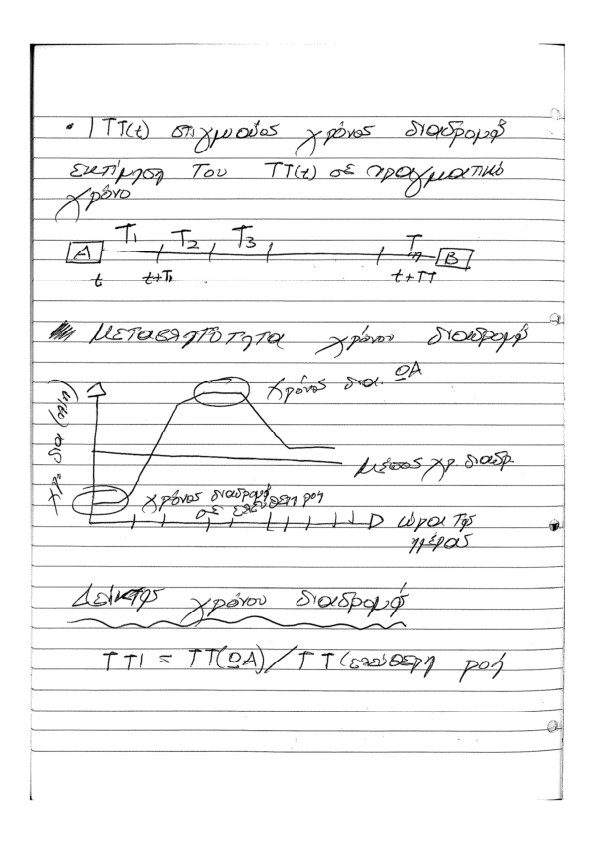 • ITT(t) στιγμιαίος χρόνος διαδρομή
εκτίμηση του TT(t) σε πραγματικό
χρόνο
T1 T2 T3 Tn
A B
t t+T1 t+TT
Μεταβλητότητα χρόνου διαδρομή
Χρόνος δια. ΩΑ
χρο δια
Μέσος χρ. διαδρ.
Χρόνος διαδρομή
σε ελεύθερη ροή
ώραι της
ημέρας
Δείκτης χρόνου διαδρομής
TTI = TT(ΩΑ) / TT(ελεύθερη ροή